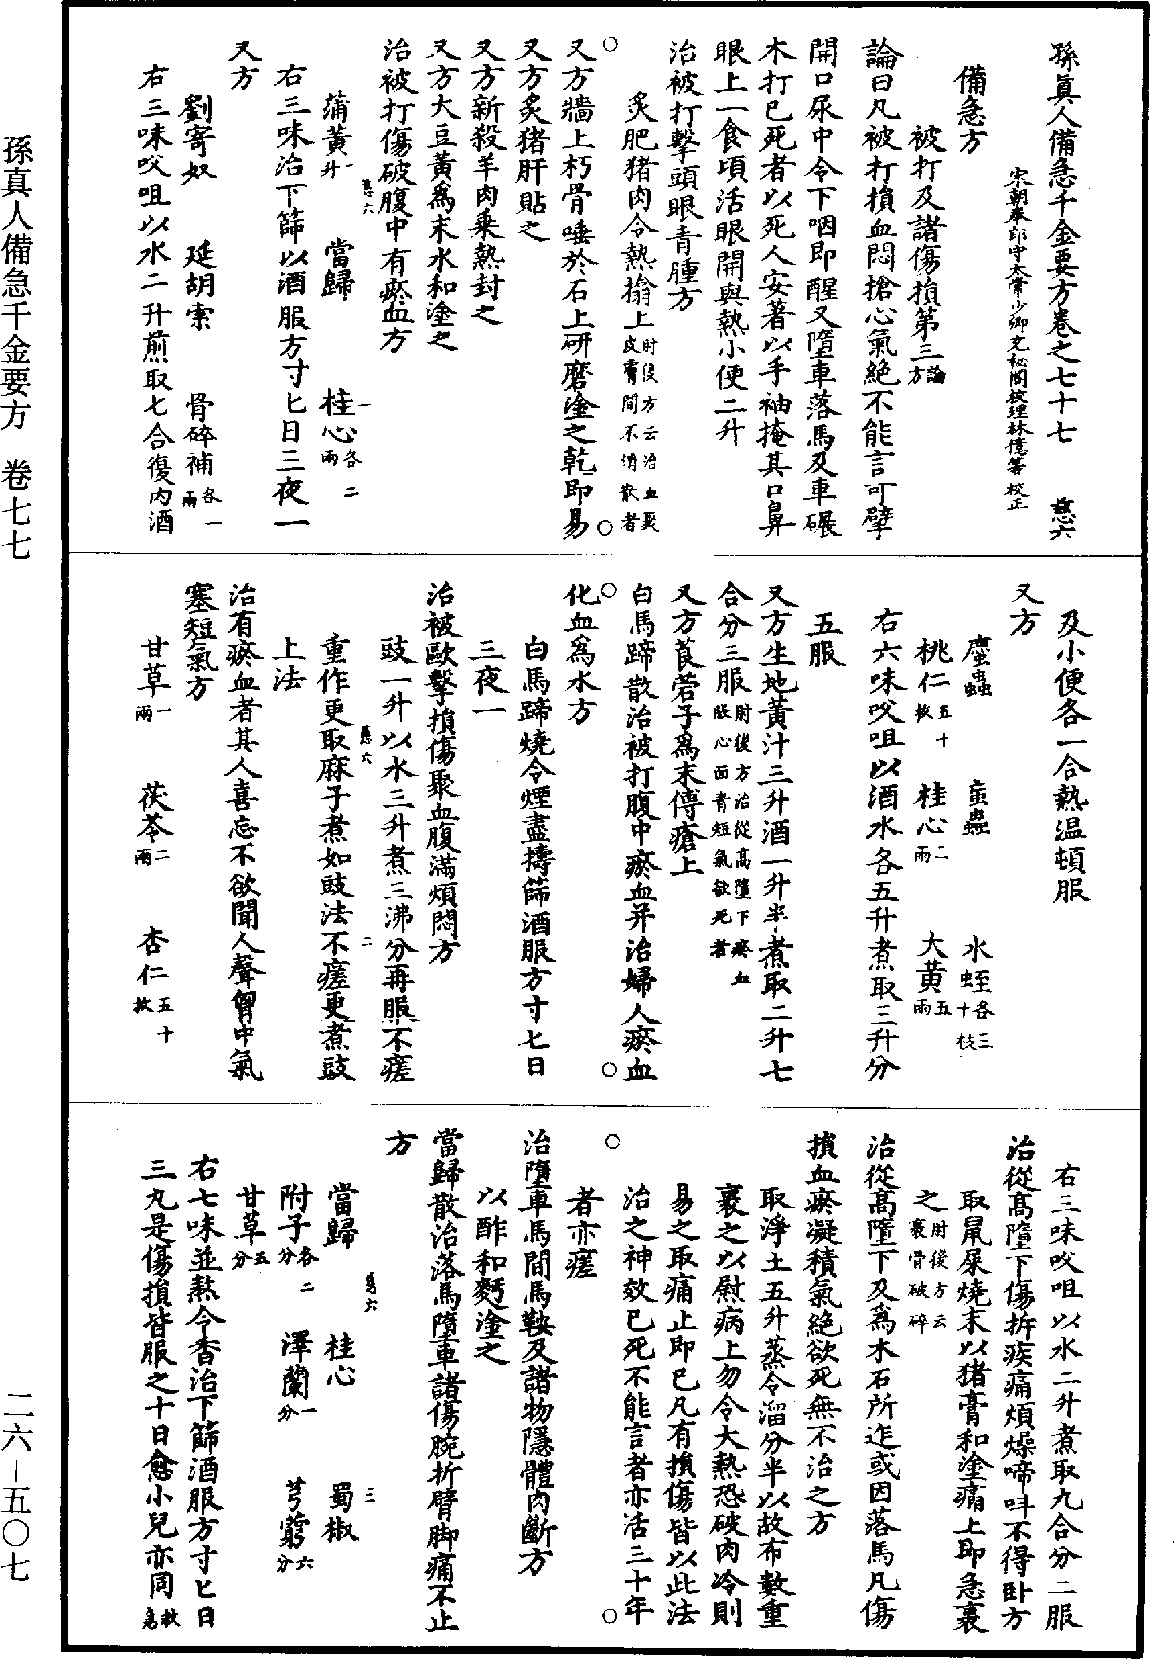 孫真人備急千金要方卷之七十七　慈六
宋朝奉郎守太常少卿充秘閣校理林億等校正
備急方
被打及諸傷損第三論方
論曰凡被打損血悶搶心氣絶不能言可擘
開口尿中令下咽即醒又墮車落馬及車碾
木打已死者以死人安著以手袖掩其口鼻
眼上一食頃活眼開與熱小便二升
治被打擊頭眼青腫方
炙肥猪肉令熱搨上肘後方云治血聚皮膚間不消散者
又方牆上朽骨唾於石上研磨塗之乾即易
又方炙猪肝貼之
又方新殺羊肉乘熱封之
又方大豆黃爲末水和塗之
治被打傷破腹中有瘀血方
蒲黃一升　當歸　桂心各二兩
慈六　一
右三味治下篩以酒服方寸匕日三夜一
又方
劉寄奴　延胡索　骨碎補各一兩
右三味㕮咀以水二升煎取七合復内酒
及小便各一合熱温頓服
又方
䗪蟲　䖟蟲　水蛭各三十枚
桃仁五十枚　桂心二兩　大黃五兩
右六味㕮咀以酒水各五升煮取三升分
五服
又方生地黃汁三升酒一升半煮取二升七
合分三服肘後方治從髙墮下瘀血脹心面青短氣欲死者
又方莨菪子爲末傅瘡上
白馬蹄散治被打腹中瘀血并治婦人瘀血
化血爲水方
白馬蹄燒令煙盡擣篩酒服方寸匕日
三夜一
治被歐擊損傷聚血腹滿煩悶方
豉一升以水三升煮三沸分再服不瘥
慈六　二
重作更取麻子煮如豉法不瘥更煮豉
上法
治有瘀血者其人喜忘不欲聞人聲胷中氣
塞短氣方
甘草一兩　茯苓二兩　杏仁五十枚
右三味㕮咀以水二升煮取九合分二服
治從髙墮下傷折疾痛煩燥啼呌不得卧方
取鼠屎燒末以猪膏和塗痛上即急裹
之肘後方云裹骨破碎
治從髙墮下及爲木石所迮或因落馬凡傷
損血瘀凝積氣絶欲死無不治之方
取淨土五升蒸令溜分半以故布數重
裹之以慰病上勿令大熱恐破肉冷則
易之取痛止即已凡有損傷皆以此法
治之神效已死不能言者亦活三十年
者亦瘥
治墮車馬間馬鞍及諸物隱體肉斷方
以酢和麪塗之
當歸散治落馬墮車諸傷腕折臂脚痛不止
方
慈六　三
當歸　桂心　蜀椒
附子各二分　澤蘭一分　芎藭六分
甘草五分
右七味並熬令香治下篩酒服方寸匕日
三凡是傷損皆服之十日愈小兒亦同救急
孫真人備急千金要方　卷七七
二六－五〇七